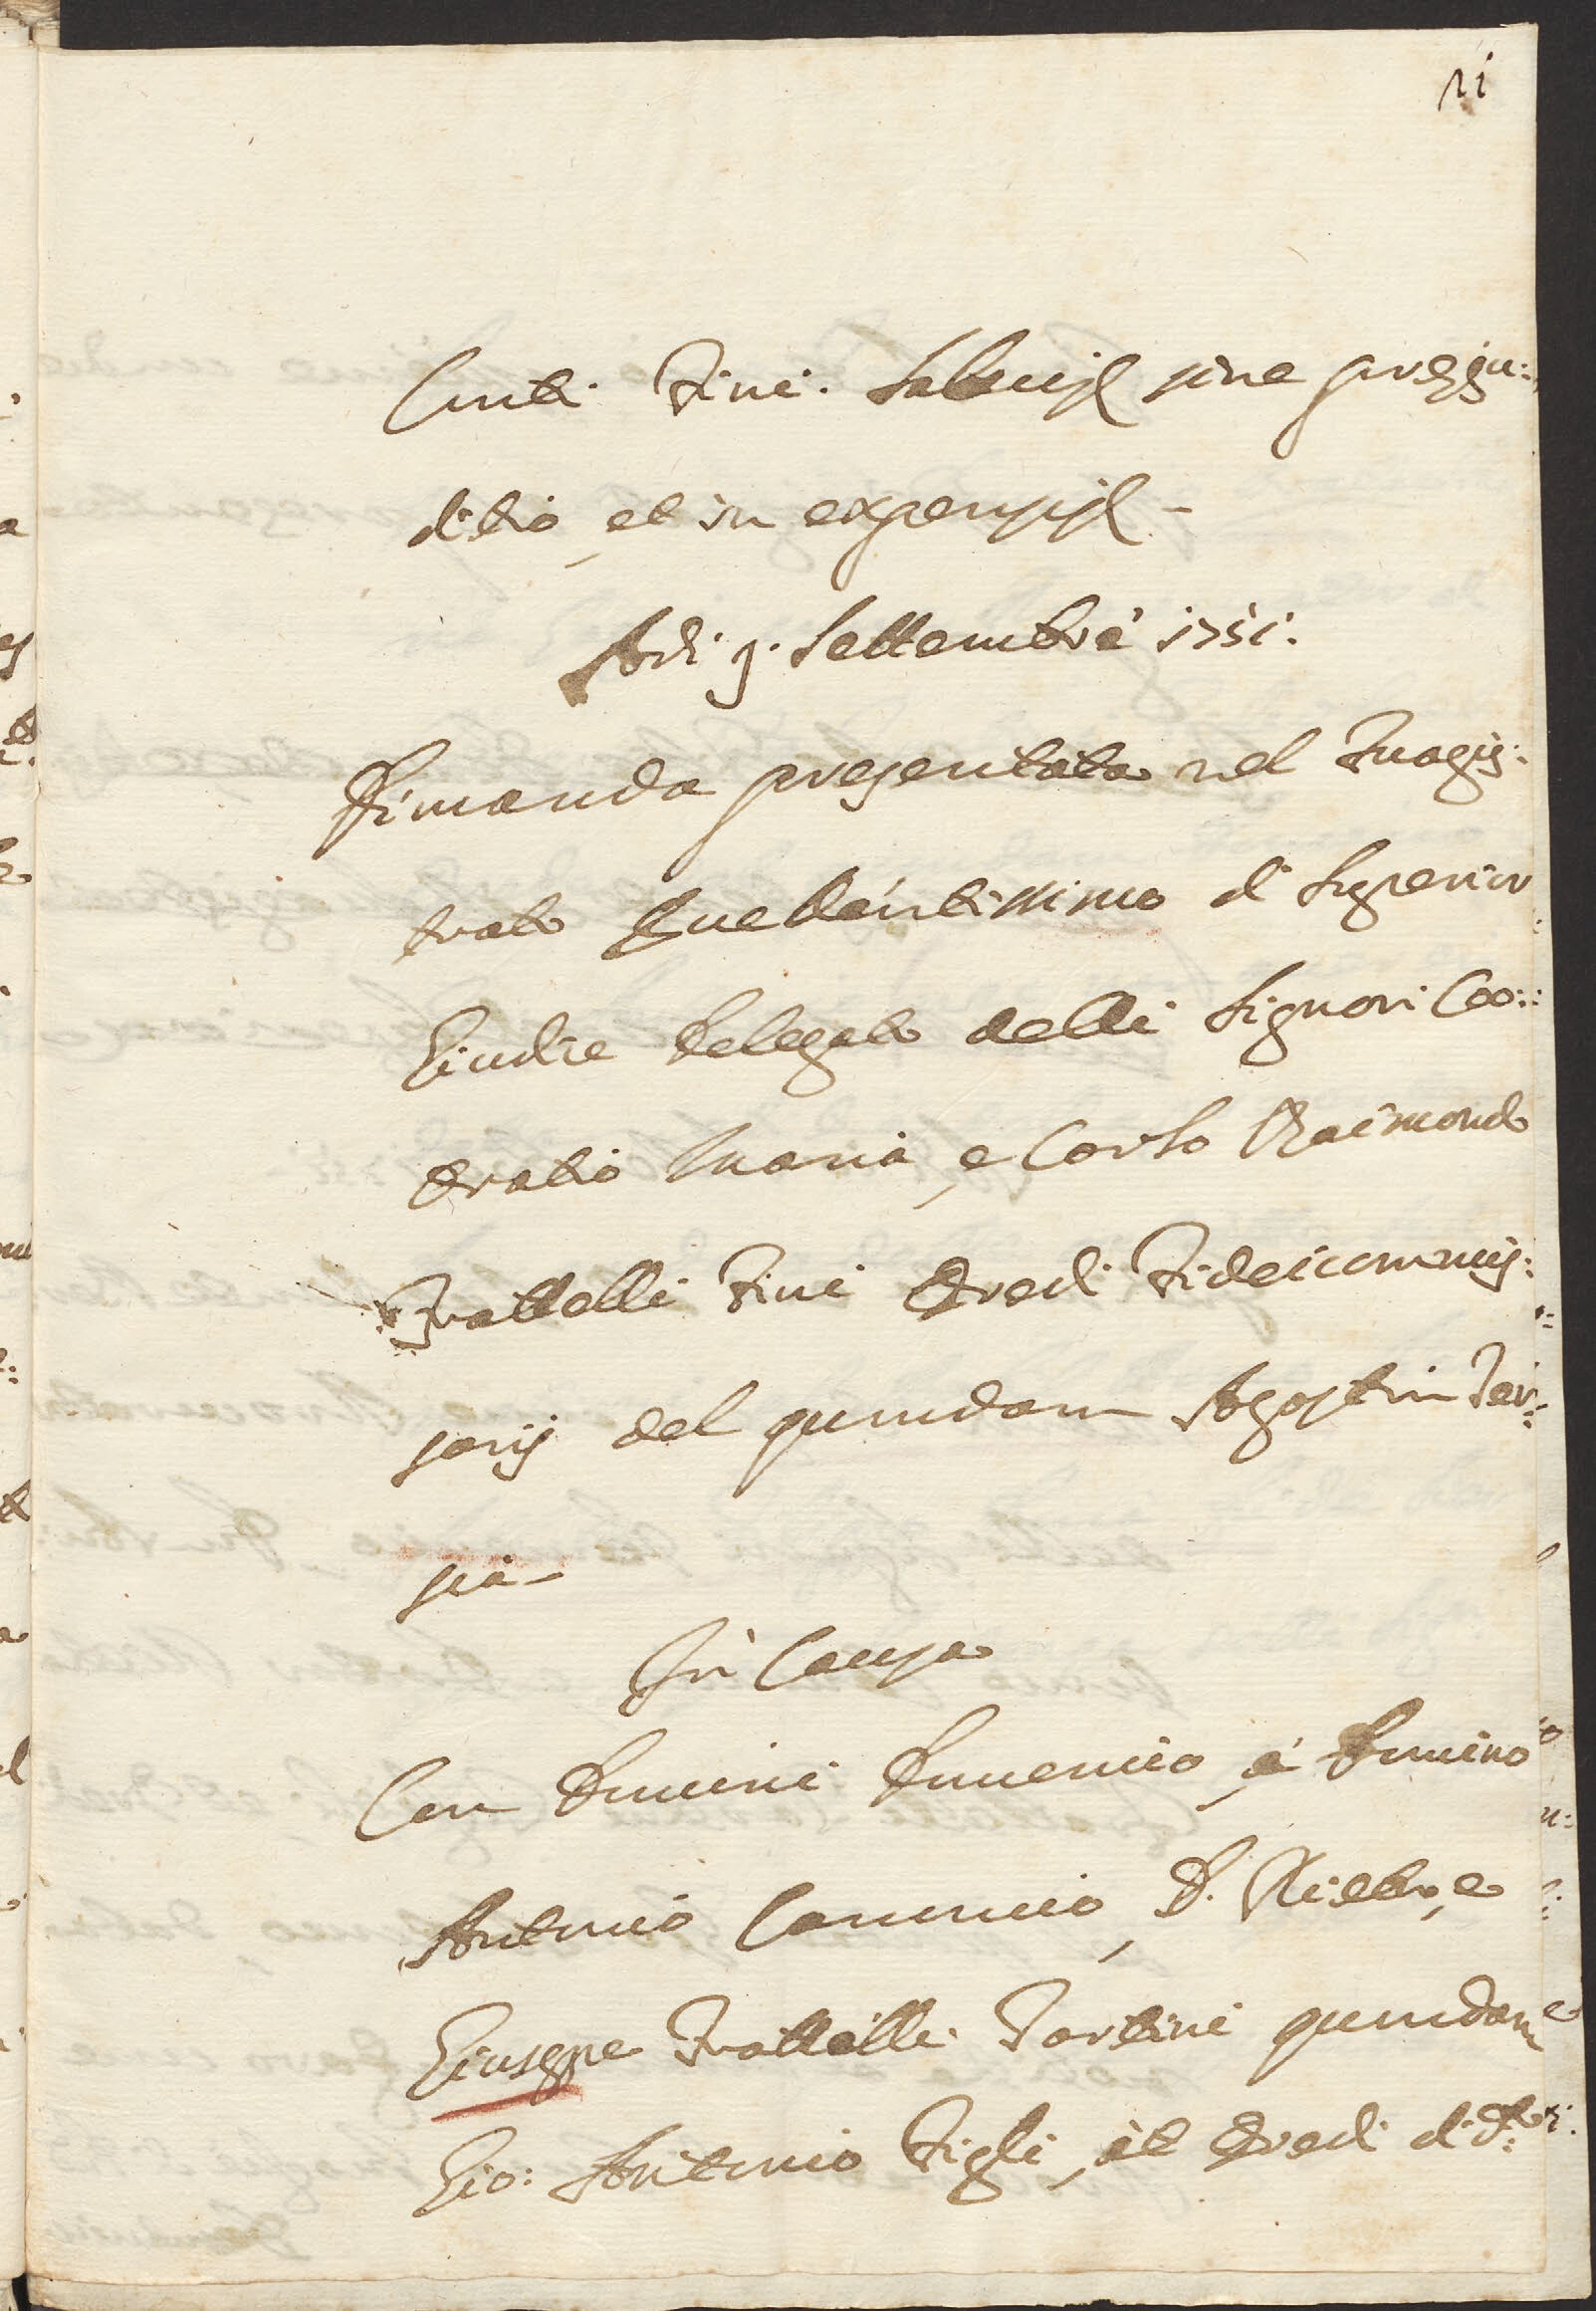 11
Conti Fini. Salvis sine preggiu:
ditio, et in expensis -
Adi 9. Settembre 1751.
Dimanda presentata nel Magis:
trato Eccellentissimo di Superior
Giudice Delegato delli Signori Co::
Oratio Maria, e Carlo Raimondo
Frattelli Fini Eredi Fideicommis:
sarij del quondam Agostin Tar:
sia -
In Causa
Con Domini Domenico, e Domino
Antonio Canonico, D. Pietro, e
Giuseppe Frattelli Tartini quondam
Gio: Antonio Figli, et Eredi di